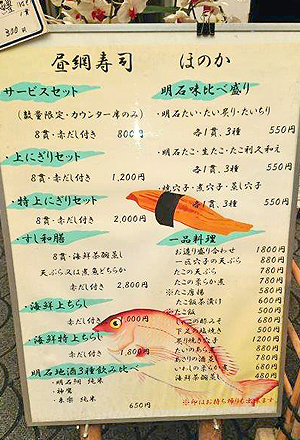 300円
昼網寿司 ほのか
サービスセット
(数量限定・カウンター席のみ)
8貫・赤だし付き 800円
・上にぎりセット
8貫・赤だし付き 1,200円
・特上にぎりセット
8貫・赤だし付き 2,000円
・すし和膳
8貫・海鮮茶碗蒸し
天ぷら又は煮魚どちらか
赤だし付き 2,800円
・海鮮上ちらし
赤だし付き 1,000円
・海鮮特上ちらし
赤だし付き 1,800円
明石地酒3種飲み比べ
・明石鯛 純米
・神鷹
・来楽 純米
650円
明石味比べ盛り
・明石たい・たい炙り・たいちり
各1貫、3種 550円
・明石たこ・生たこ・たこ利久和え
各1貫、3種 550円
・焼穴子・煮穴子・蒸し穴子
各1貫、3種 550円
一品料理
お造り盛り合わせ 1800円
一匹穴子の天ぷら 880円
たこの天ぷら 780円
たこの柔らか煮 780円
※たこ唐揚 580円
たこ飯茶漬け 600円
※たこ飯 500円
たこの酢みそ 680円
下足の塩焼き 500円
炙り焼き穴子 1200円
たいのあら 880円
あさりの酒蒸し 780円
いわしの柔らか煮 680円
海鮮茶碗蒸し 480円
※印はお持ち帰りも出来ます。